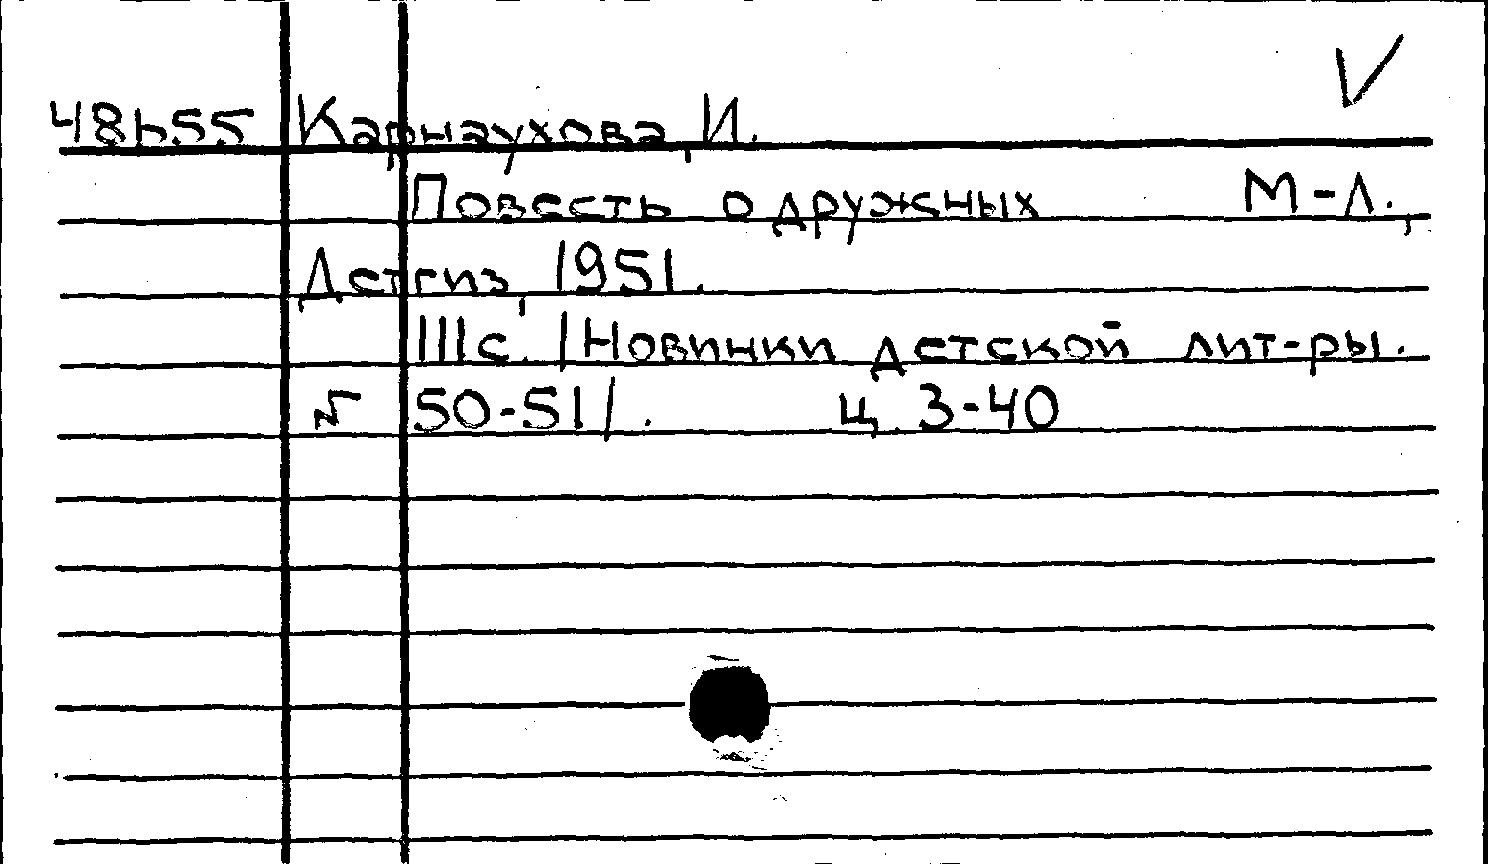 48655 Карнаухова, И. V
Повесть о дружных М-Л.,
Детгиз, 1951.
111с. /Новинки детской лит-ры.
50-51/. ц. 3-40